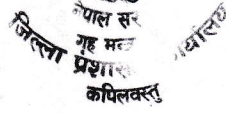 नेपाल सर
गृह मन्त्र
जिल्ला प्रशास
र्यालय
कपिलवस्तु